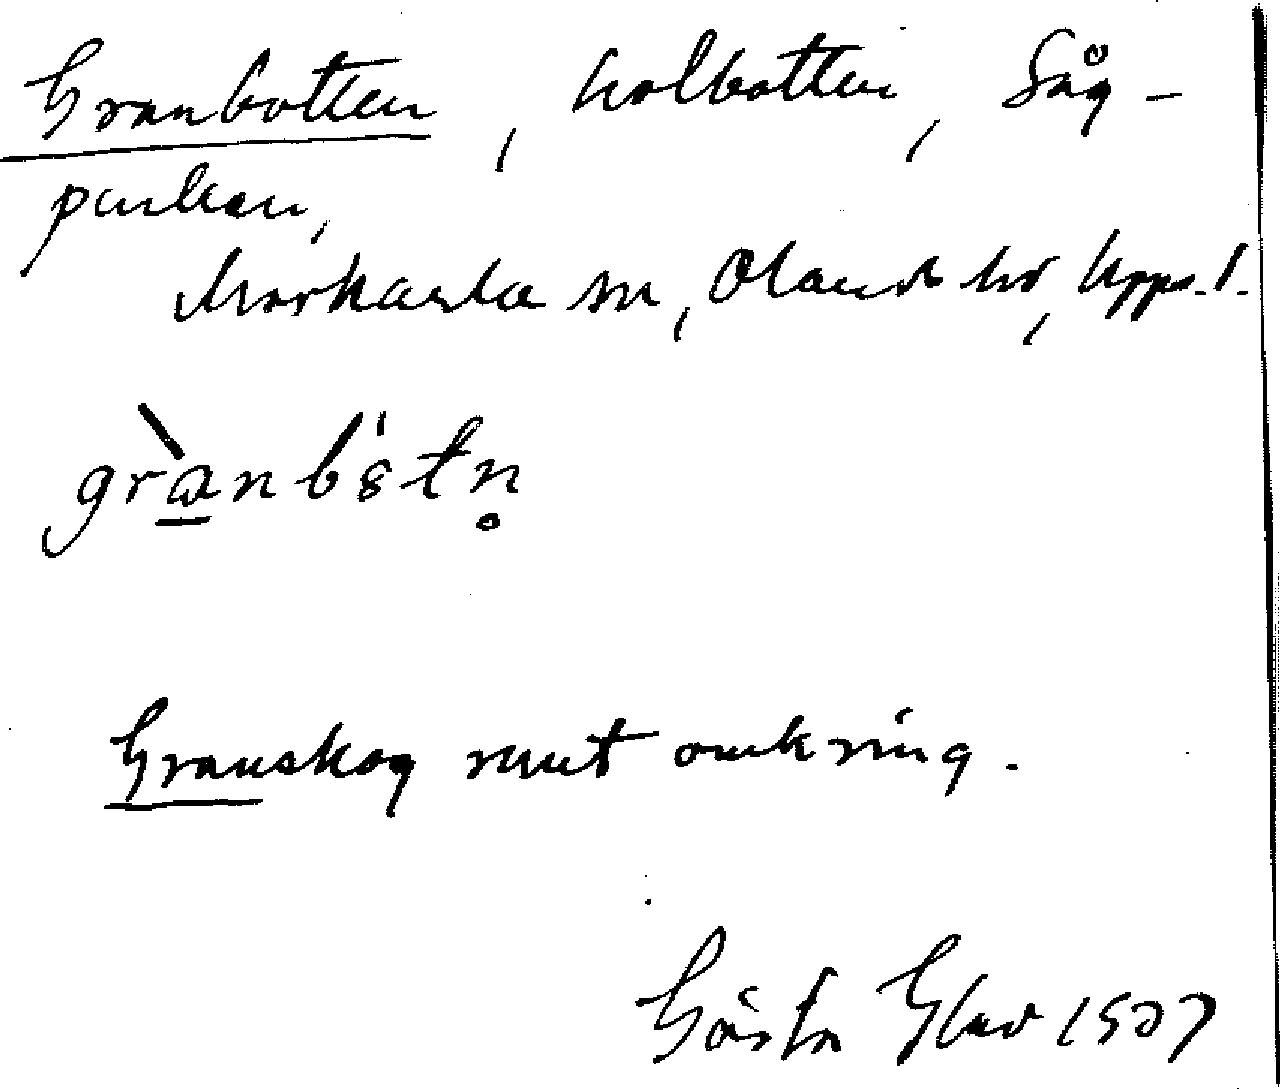 Granbotten, kolbotten, Såg-
parken,
Morkarla sn, Olands hd, Uppl.
grànbȣtn̥
Granskog runt omkring.
Gösta